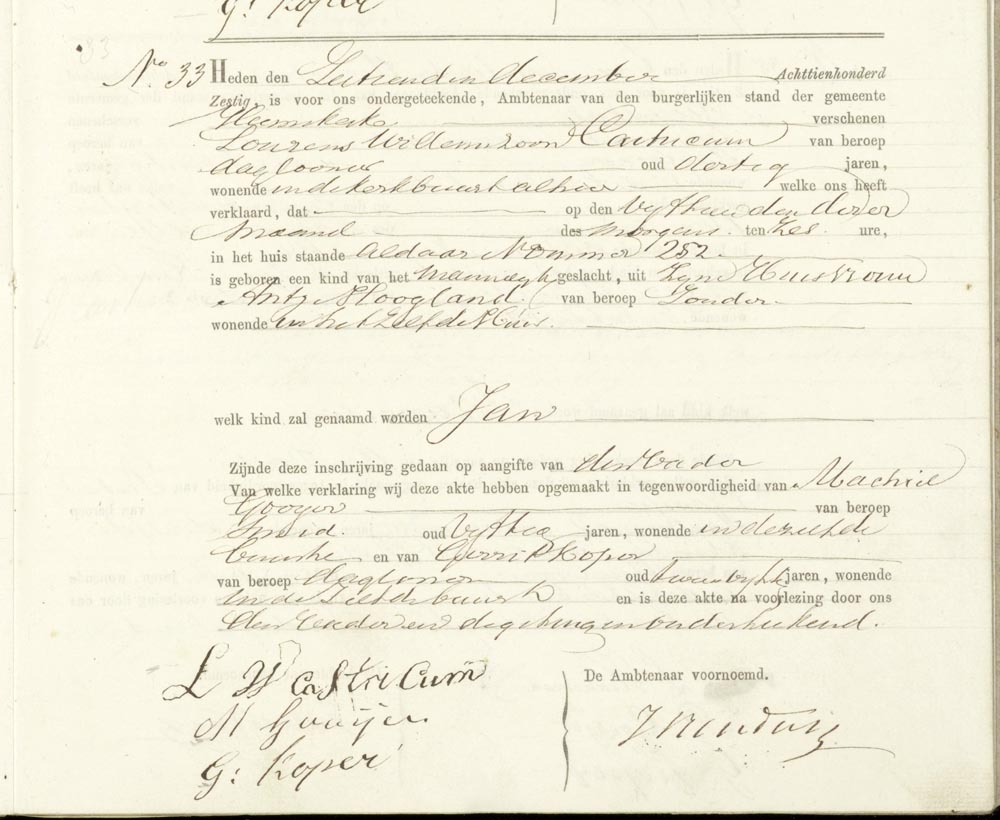 G: Koper
33
No. 33 Heden den Zestienden December Achttienhonderd
Zestig, is voor ons ondergeteekende, Ambtenaar van den burgerlijken stand der gemeente
Heemskerk verschenen
Lourens Willemszoon Castricum van beroep
daglooner oud dertig jaren,
wonende in de kerkbuurt alhier welke ons heeft
verklaard, dat op den Vyftienden dezer
Maand des morgens ten Zes ure,
in het huis staande aldaar Nommer 252.
is geboren een kind van het Mannelyk geslacht, uit Zyne Huisvrouw
Antje Hoogland van beroep Zonder
wonende in het Zelfde Huis.
welk kind zal genaamd worden Jan
Zijnde deze inschrijving gedaan op aangifte van den Vader
Van welke verklaring wij deze akte hebben opgemaakt in tegenwoordigheid van Machiel
Gooyer van beroep
Smid. oud Vyftig jaren, wonende in dezelfde
buurt en van Gerrit Koper
van beroep daglooner oud jaren, wonende
in de Zelfde buurt en is deze akte na voorlezing door ons
den Vader en de getuigen onderteekend.
L W CaStricum
M Gooijer
G: Koper
De Ambtenaar voornoemd.